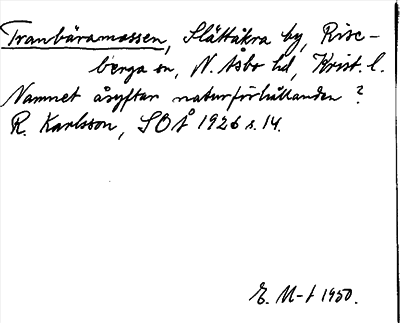 Tranbäramossen, Slättåkra by, Rise-
berga sn, N. Åsbo hd, Krist. l.
Namnet åsyftar naturförhållanden?
R. Karlsson, SOÅ 1926 s. 14.
E. M-t 1950.